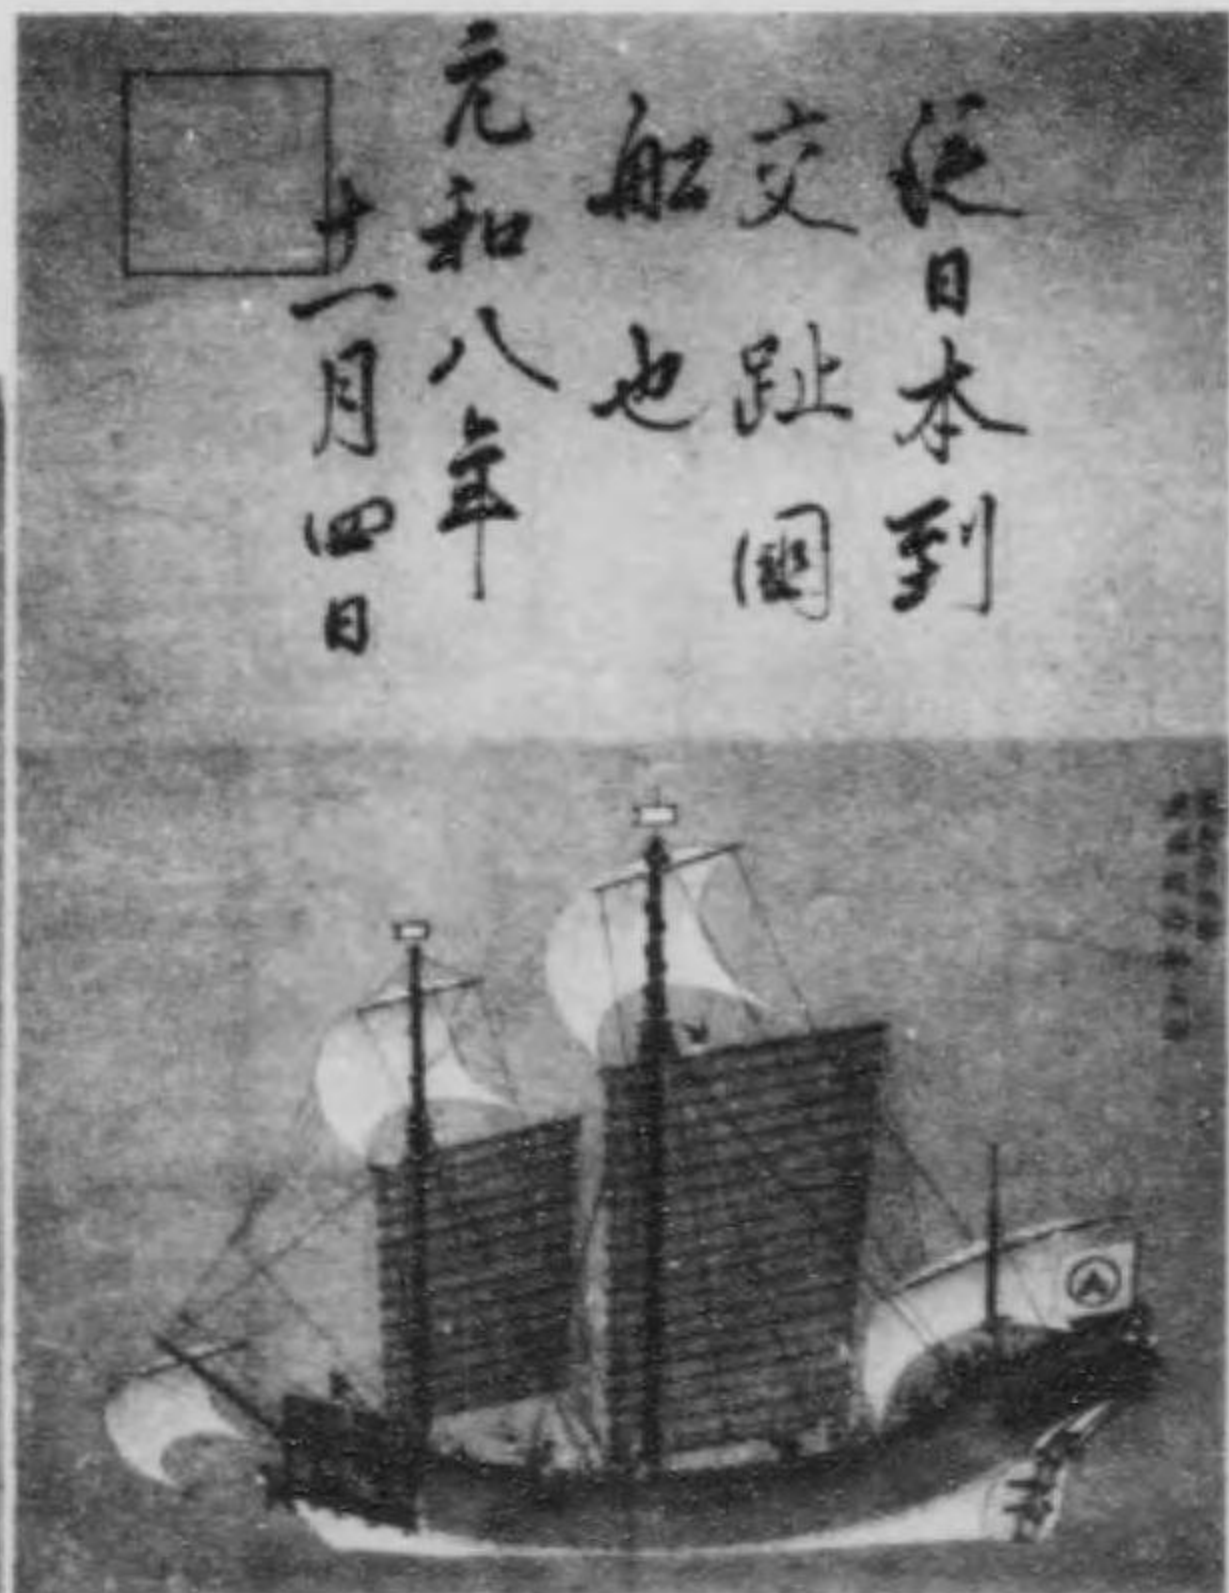 從日本到
交趾國
舩也
元和八年
十一月四日